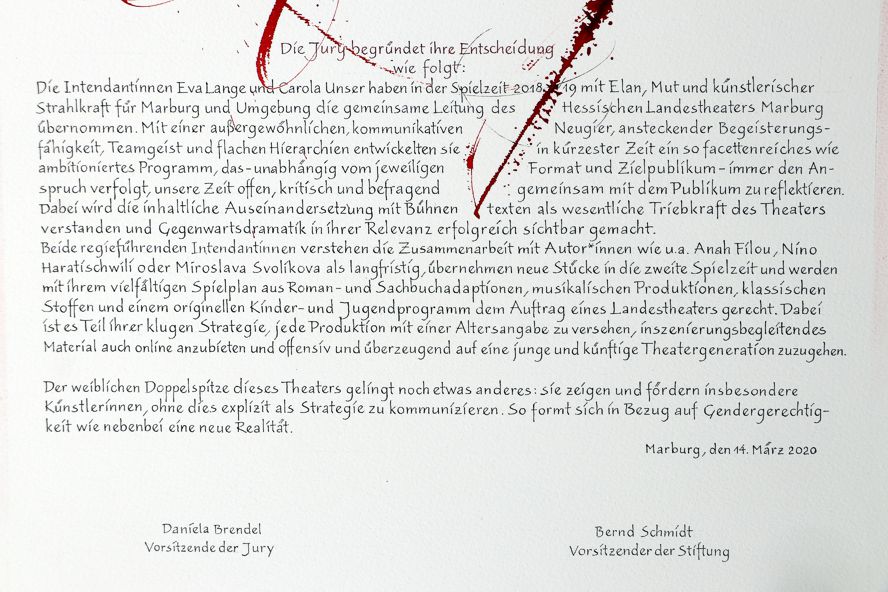 Die Jury begründet ihre Entscheidung
wie folgt:
Die Intendantinnen Eva Lange und Carola Unser haben in der Spielzeit 2018 19 mit Elan, Mut und künstlerischer
Strahlkraft für Marburg und Umgebung die gemeinsame Leitung des Hessischen Landestheaters Marburg
übernommen. Mit einer außergewöhnlichen, kommunikativen Neugier, ansteckender Begeisterungs-
fähigkeit, Teamgeist und flachen Hierarchien entwickelten sie in kürzester Zeit ein so facettenreiches wie
ambitioniertes Programm, das - unabhängig vom jeweiligen Format und Zielpublikum - immer den An-
spruch verfolgt, unsere Zeit offen, kritisch und befragend gemeinsam mit dem Publikum zu reflektieren.
Dabei wird die inhaltliche Auseinandersetzung mit Bühnen texten als wesentliche Triebkraft des Theaters
verstanden und Gegenwartsdramatik in ihrer Relevanz erfolgreich sichtbar gemacht.
Beide regieführenden Intendantinnen verstehen die Zusammenarbeit mit Autor*innen wie u.a. Anah Filou, Nino
Haratischwili oder Miroslava Svolikova als langfristig, übernehmen neue Stücke in die zweite Spielzeit und werden
mit ihrem vielfältigen Spielplan aus Roman- und Sachbuchadaptionen, musikalischen Produktionen, klassischen
Stoffen und einem originellen Kinder- und Jugendprogramm dem Auftrag eines Landestheaters gerecht. Dabei
ist es Teil ihrer klugen Strategie, jede Produktion mit einer Altersangabe zu versehen, inszenierungsbegleitendes
Material auch online anzubieten und offensiv und überzeugend auf eine junge und künftige Theatergeneration zuzugehen.
Der weiblichen Doppelspitze dieses Theaters gelingt noch etwas anderes: sie zeigen und fördern insbesondere
Künstlerinnen, ohne dies explizit als Strategie zu kommunizieren. So formt sich in Bezug auf Gendergerechtig-
keit wie nebenbei eine neue Realität.
Marburg, den 14. März 2020
Daniela Brendel
Vorsitzende der Jury
Bernd Schmidt
Vorsitzender der Stiftung